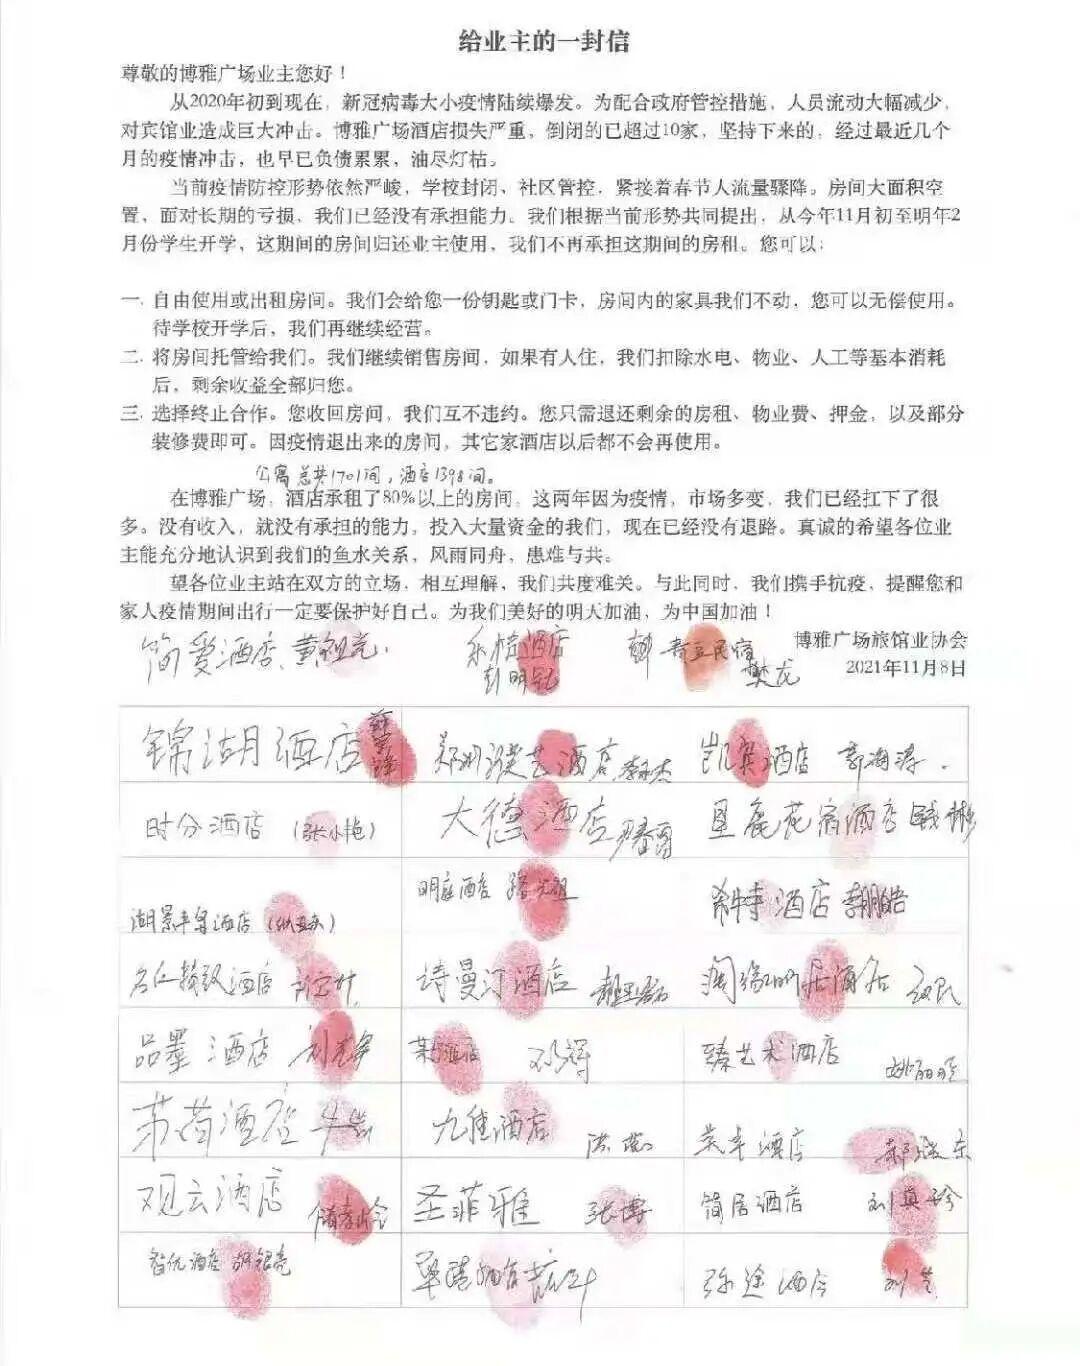 给业主的一封信
尊敬的博雅广场业主您好！
从2020年初到现在，新冠病毒大小疫情陆续爆发。为配合政府管控措施，人员流动大幅减少，
对宾馆业造成巨大冲击。博雅广场酒店损失严重，倒闭的已超过10家，坚持下来的，经过最近几个
月的疫情冲击，也早已负债累累，油尽灯枯。
当前疫情防控形势依然严峻，学校封闭、社区管控，紧接着春节人流量骤降。房间大面积空
置，面对长期的亏损，我们已经没有承担能力。我们根据当前形势共同提出，从今年11月初至明年2
月份学生开学，这期间的房间归还业主使用，我们不再承担这期间的房租。您可以：
一. 自由使用或出租房间。我们会给您一份钥匙或门卡，房间内的家具我们不动，您可以无偿使用。
待学校开学后，我们再继续经营。
二. 将房间托管给我们。我们继续销售房间，如果有人住，我们扣除水电、物业、人工等基本消耗
后，剩余收益全部归您。
三. 选择终止合作。您收回房间，我们互不违约。您只需退还剩余的房租、物业费、押金，以及部分
装修费即可。因疫情退出来的房间，其它家酒店以后都不会再使用。
公寓总共1701间，酒店1398间。
在博雅广场，酒店承租了80%以上的房间，这两年因为疫情，市场多变，我们已经扛下了很
多。没有收入，就没有承担的能力，投入大量资金的我们，现在已经没有退路。真诚的希望各位业
主能充分地认识到我们的鱼水关系，风雨同舟，患难与共。
望各位业主站在双方的立场，相互理解，我们共度难关。与此同时，我们携手抗疫，提醒您和
家人疫情期间出行一定要保护好自己。为我们美好的明天加油，为中国加油！
博雅广场旅馆业协会
2021年11月8日
简爱酒店
酒店
民宿 樊龙
锦湖酒店
酒店
凯宾酒店
时分酒店（张小艳）
大德酒店
花宿酒店
酒店
希特酒店 李鹏皓
酒店
诗曼汀酒店
品墨酒店
邓辉
臻艺术酒店
茉荷酒店
九佳酒店
酒店
观云酒店
圣菲雅 张博
简居酒店
智优酒店 胡银亮
弥途酒店